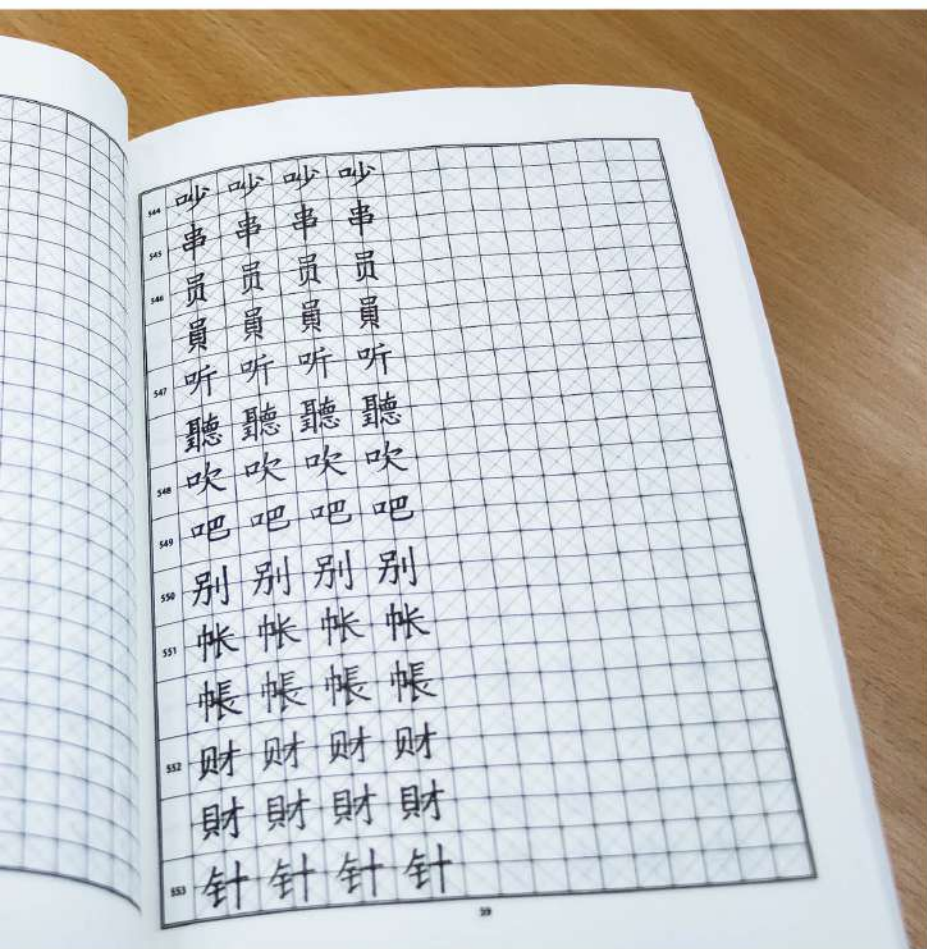 544 吵 吵 吵 吵
545 串 串 串 串
546 员 员 员 员
員 員 員 員
547 听 听 听 听
聽 聽 聽 聽
548 吹 吹 吹 吹
549 吧 吧 吧 吧
550 别 别 别 别
551 帐 帐 帐 帐
帳 帳 帳 帳
552 财 财 财 财
財 財 財 財
553 针 针 针 针
39